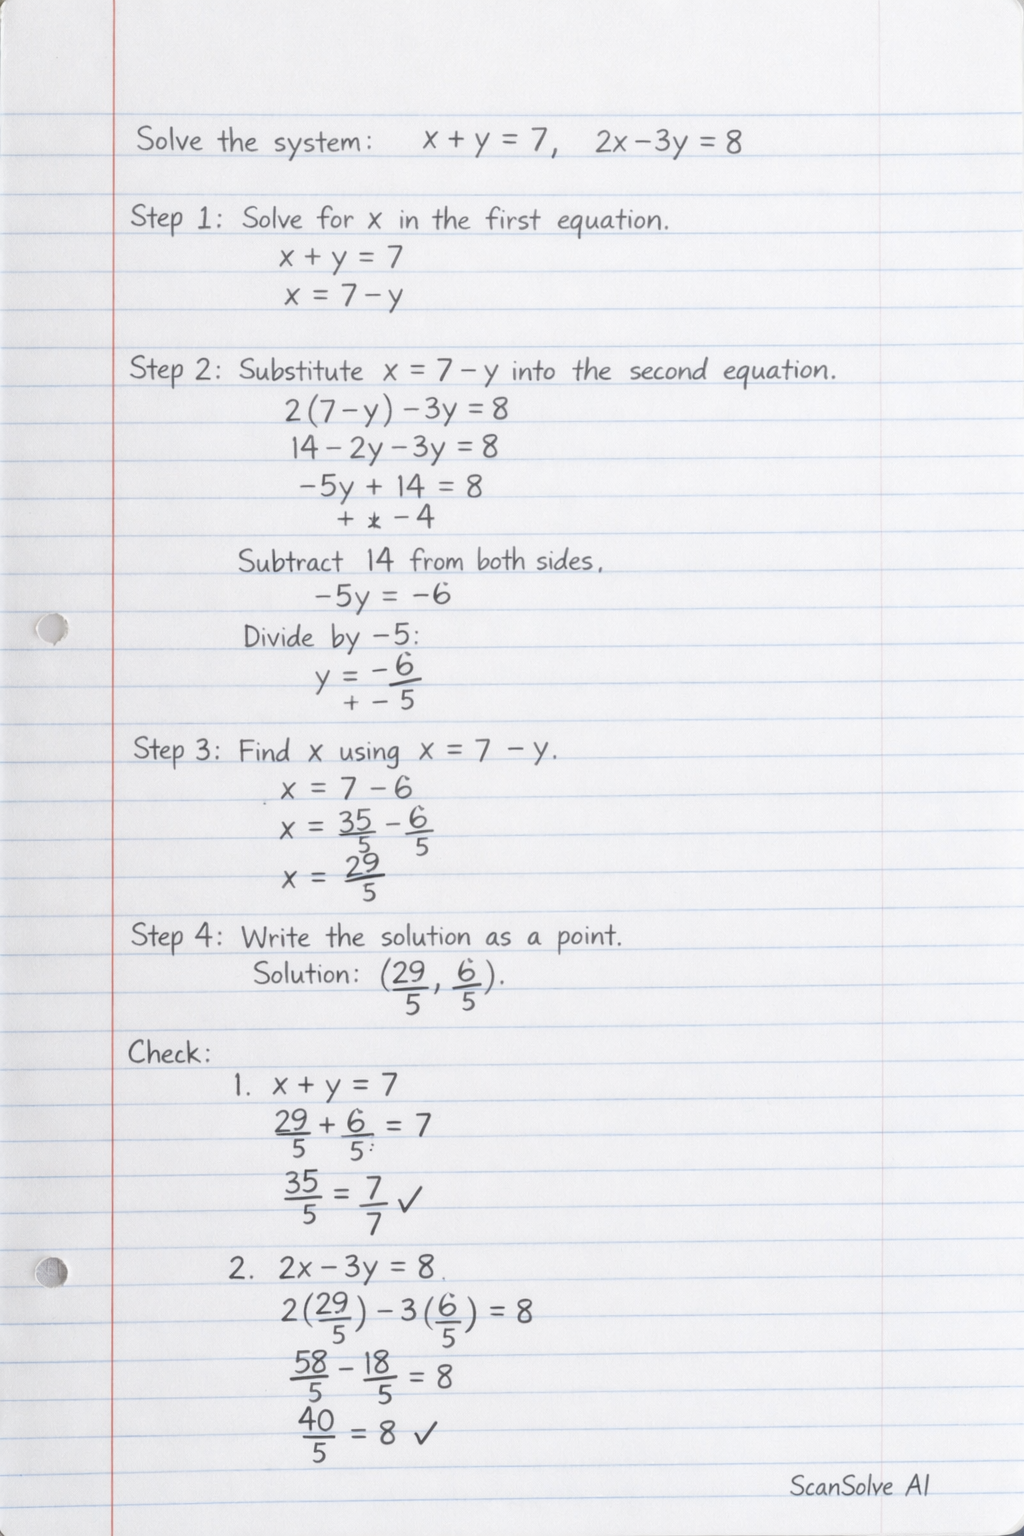 Solve the system: x + y = 7, 2x - 3y = 8
Step 1: Solve for x in the first equation.
x + y = 7
x = 7 - y
Step 2: Substitute x = 7 - y into the second equation.
2(7 - y) - 3y = 8
14 - 2y - 3y = 8
-5y + 14 = 8
+ - 4
Subtract 14 from both sides,
-5y = -6
Divide by -5:
y = -6/5
+ -
Step 3: Find x using x = 7 - y.
x = 7 - 6
x = 35/5 - 6/5
x = 29/5
Step 4: Write the solution as a point.
Solution: (29/5, 6/5).
Check:
1. x + y = 7
29/5 + 6/5 = 7
35/5 = 7/7 ✓
2. 2x - 3y = 8
2(29/5) - 3(6/5) = 8
58/5 - 18/5 = 8
40/5 = 8 ✓
ScanSolve AI